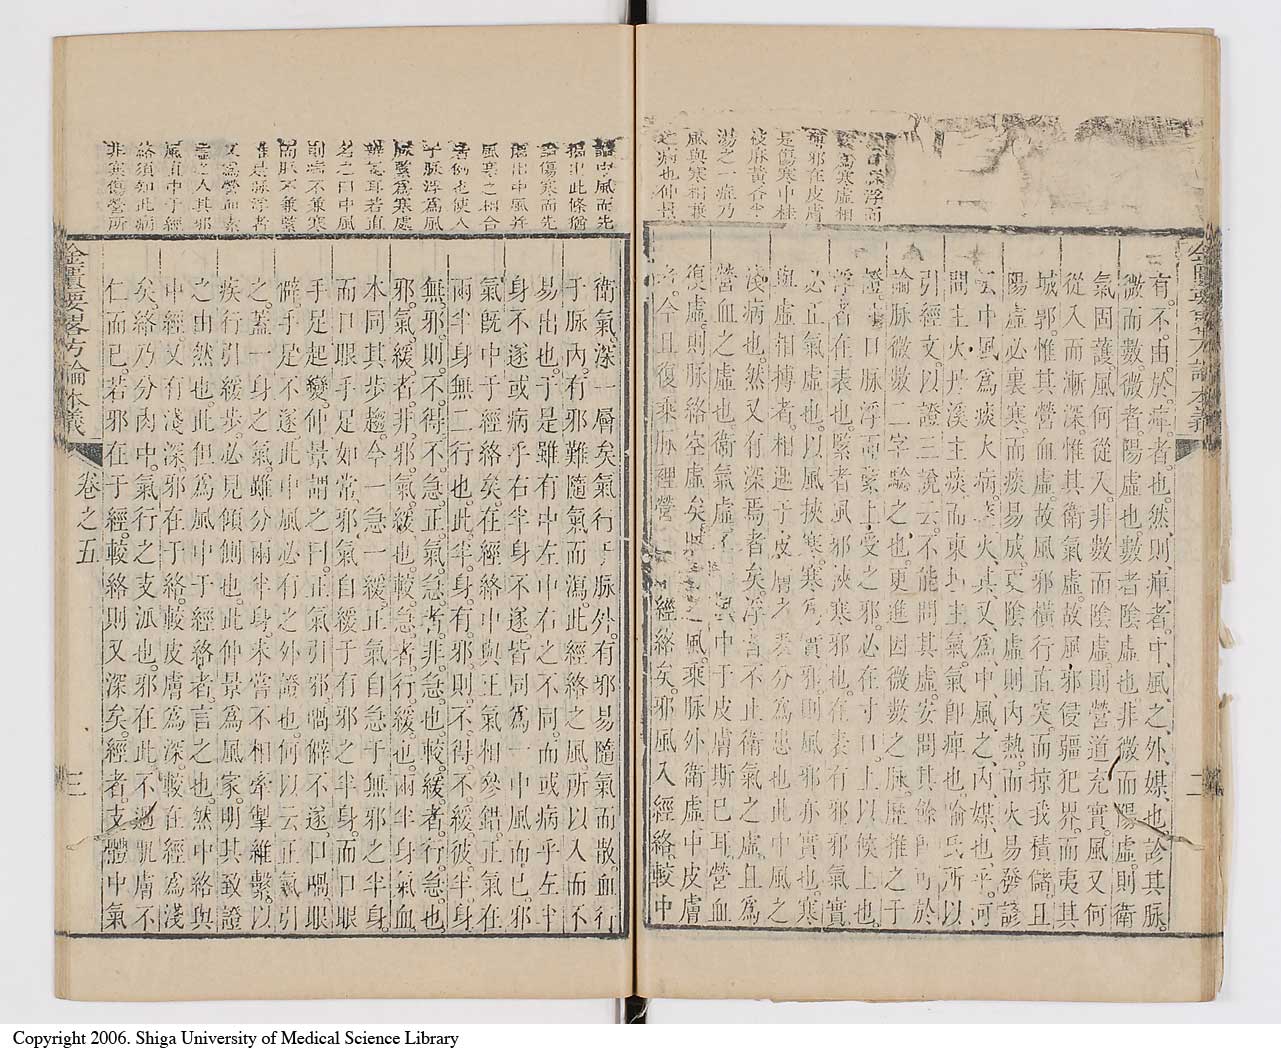 脉浮而
寒虛相
邪在皮膚
是傷寒中桂
枝麻黃各半
湯之一症乃
風與寒相兼
之病也仲景
有不由於痺者也然則痺者中風之外媒也診其脉
微而數微者陽虛也數者陰虛也非微而陽虛則衛
氣固護風何從入非數而陰虛則營道充實風又何
從入而漸深惟其衛氣虛故風邪侵疆犯界而夷其
城郭惟其營血虛故風邪橫行直突而掠我積儲且
陽虛必裏寒而痰易成更陰虛則內熱而火易發諺
云中風爲痰火病痰火其又爲中風之內媒也乎河
間主火丹溪主痰而東垣主氣氣卽痺也喻氏所以
引經文以證三說云不能問其虛安問其餘何於
論脉微數二字驗之也更進因微數之脉歷推之于
證寸口脉浮而緊上受之邪必在寸口上以候上也
浮者在表也緊者風邪浹寒邪也在表有邪邪氣實
必正氣虛也以風挾寒寒爲實邪則風邪亦實也寒
與虛相搏者相遜于皮膚之
淺病也然又有深焉者矣浮者不止衛氣之虛且爲
營血之虛也衛氣虛不與中于皮膚斯已耳營血
復虛則脉絡空虛矣
者今且復乘脉裡營經絡矣邪風入經絡較中
金匱要畧方論本義
二
論中風而先
揭出此條猶
論傷寒而先
揭出中風并
風寒之相合
者例也使人
于脉浮爲風
脉緊爲寒處
辨竟耳若直
名之曰中風
則若不兼寒
而脉不兼緊
惟是脉浮者
又爲營血素
虛之人其邪
風直中于經
絡須知此病
非寒傷營所
衛氣深一層矣氣行于脉外有邪易隨氣而散血行
于脉內有邪難隨氣而瀉此經絡之風所以入而不
易出也于是雖有中左中右之不同而或病乎左半
身不遂或病乎右半身不遂皆同爲一中風而已邪
氣旣中于經絡矣在經絡中與正氣相參錯正氣在
兩半身無二行也此半身有邪則不得不緩彼半身
無邪則不得不急正氣急者非急也較緩者行急也
邪氣緩者非邪氣緩也較急者行緩也兩半身氣血
本同其步趨今一急一緩正氣自急于無邪之半身
而口眼手足如常邪氣自緩于有邪之半身而口眼
手足起變仲景謂之曰正氣引邪喎僻不遂口喎眼
僻手足不遂此中風必有之外證也何以云正氣引
之蓋一身之氣雖分兩半身來嘗不相牽掣維繫以
疾行引緩步必見傾側也此仲景爲風家明其致證
之由然也此但爲風中于經絡者言之也然中絡與
中經又有淺深邪在于絡較皮膚爲深較在經爲淺
矣絡乃分肉中氣行之支派也邪在此不過肌膚不
仁而已若邪在于經較絡則又深矣經者支體中氣
金匱要畧方論本義
卷之五
三
Copyright 2006. Shiga University of Medical Science Library